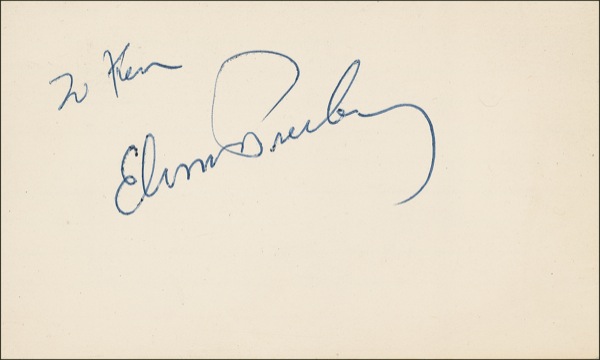 To Ken
Elvis Presley